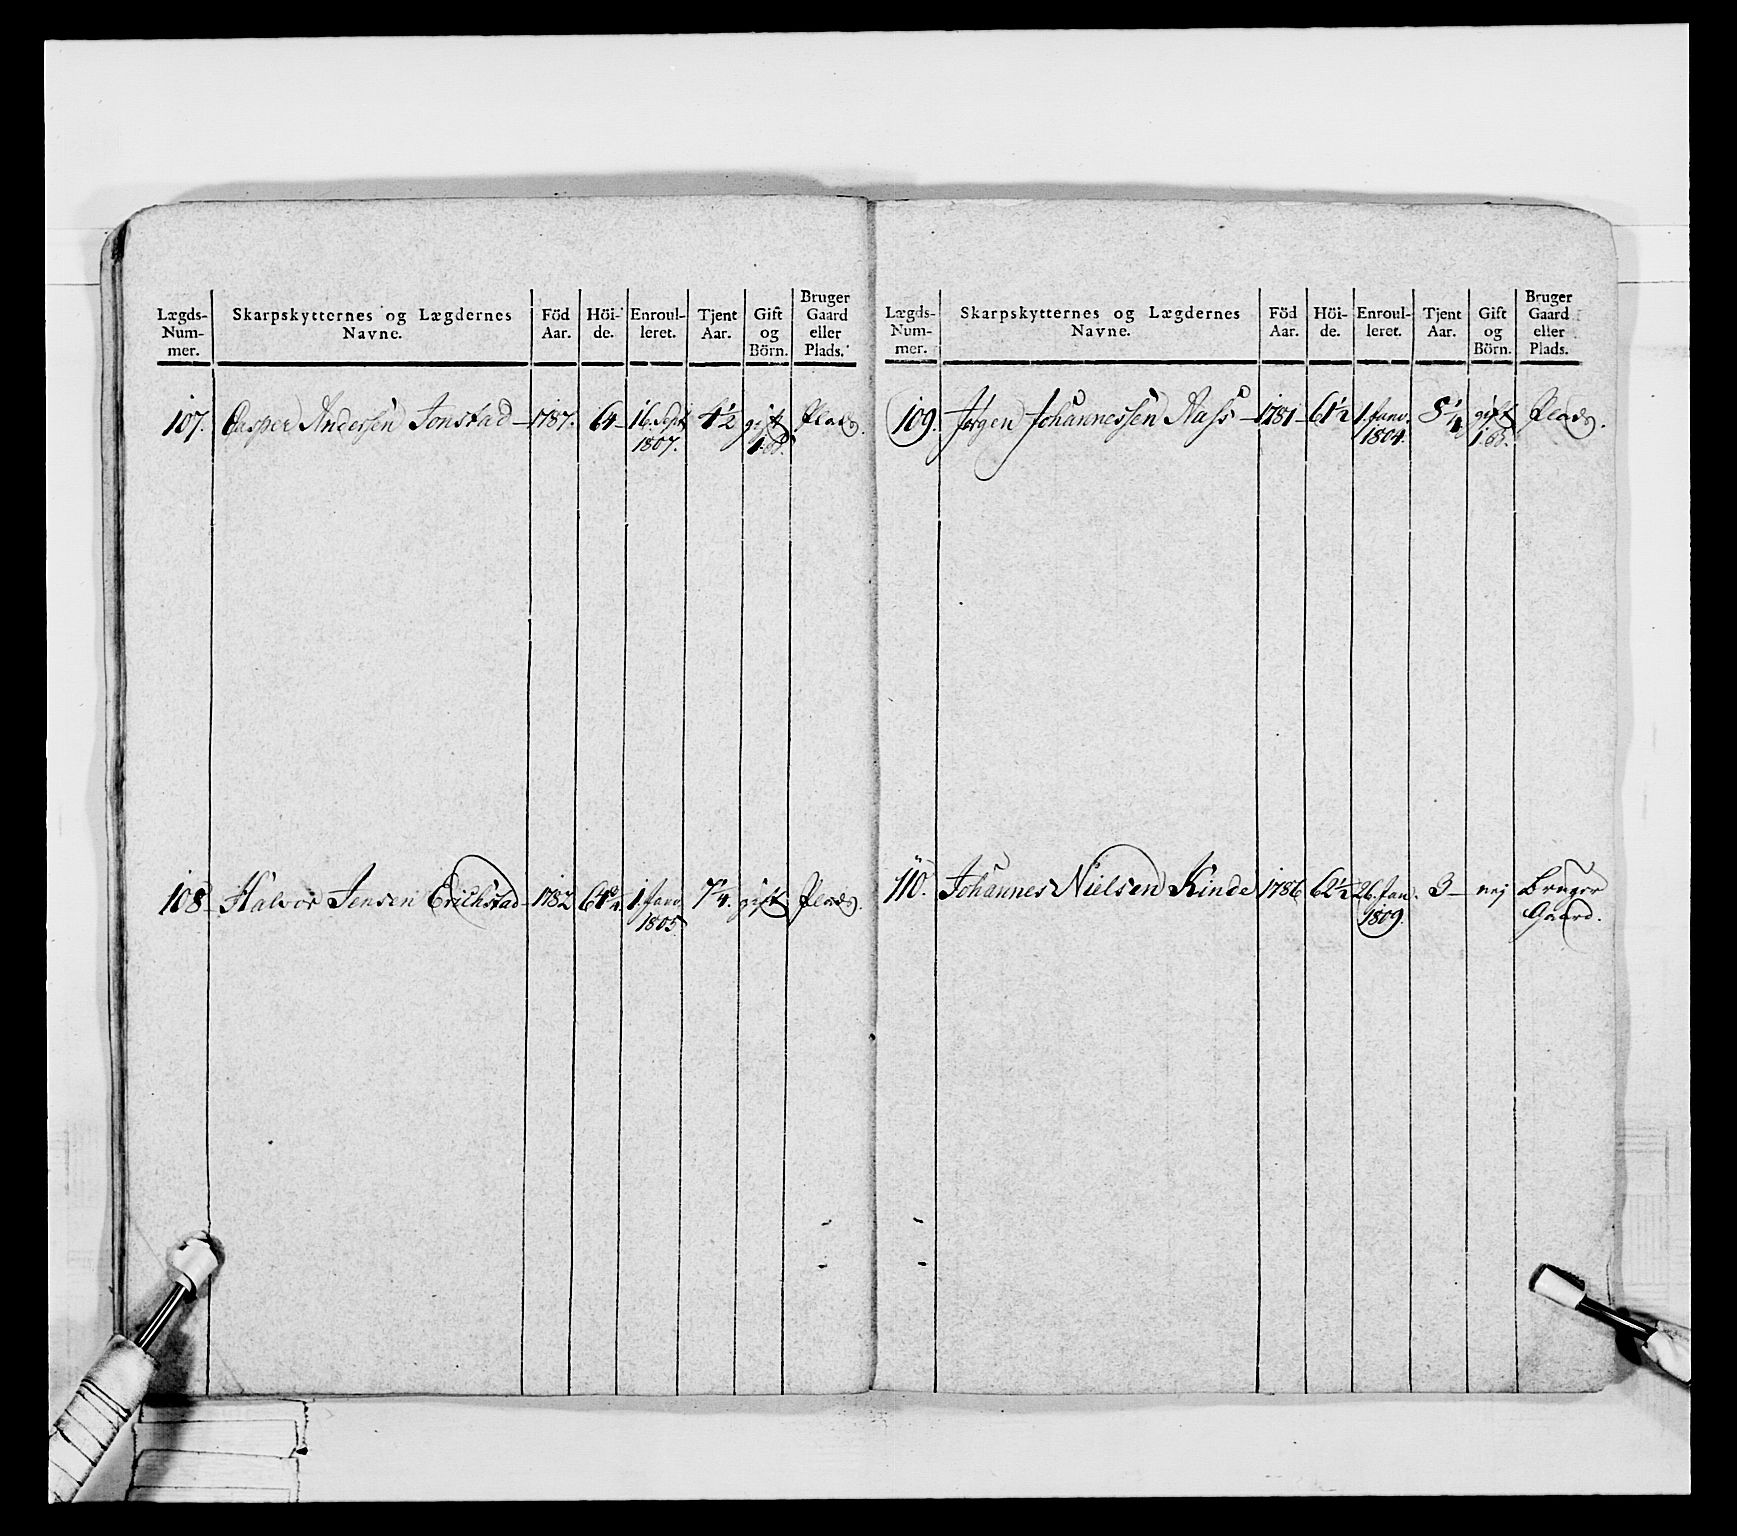 Lægds-Num-mer. Skarpskytternes og Lægdernes Navne. Föd Aar. Höi-de. Enroul-leret. Tjent Aar. Gift og Börn. Bruger Gaard eller Plads.
107. Casper Andersen Jonstad – 1787. 64 – 16. Sept. 4½ gift Plads.
1807. 1. B.
108 – Halvor Jensen Erichstad – 1782 64¾ 1. Janv. 7¼. gift Plads.
1805.
Lægds-Num-mer. Skarpskytternes og Lægdernes Navne. Föd Aar. Höi-de. Enroul-leret. Tjent Aar. Gift og Börn. Bruger Gaard eller Plads.
109. Jörgen Johannessen Aass – 1781 – 61½ 1. Janv. 8¼ gift Plads.
1804. 1. B.
110. Johannes Nielsen Kinde 1786 62½ 26. Jan. 3 – nej Bruger
1809. Gaard.